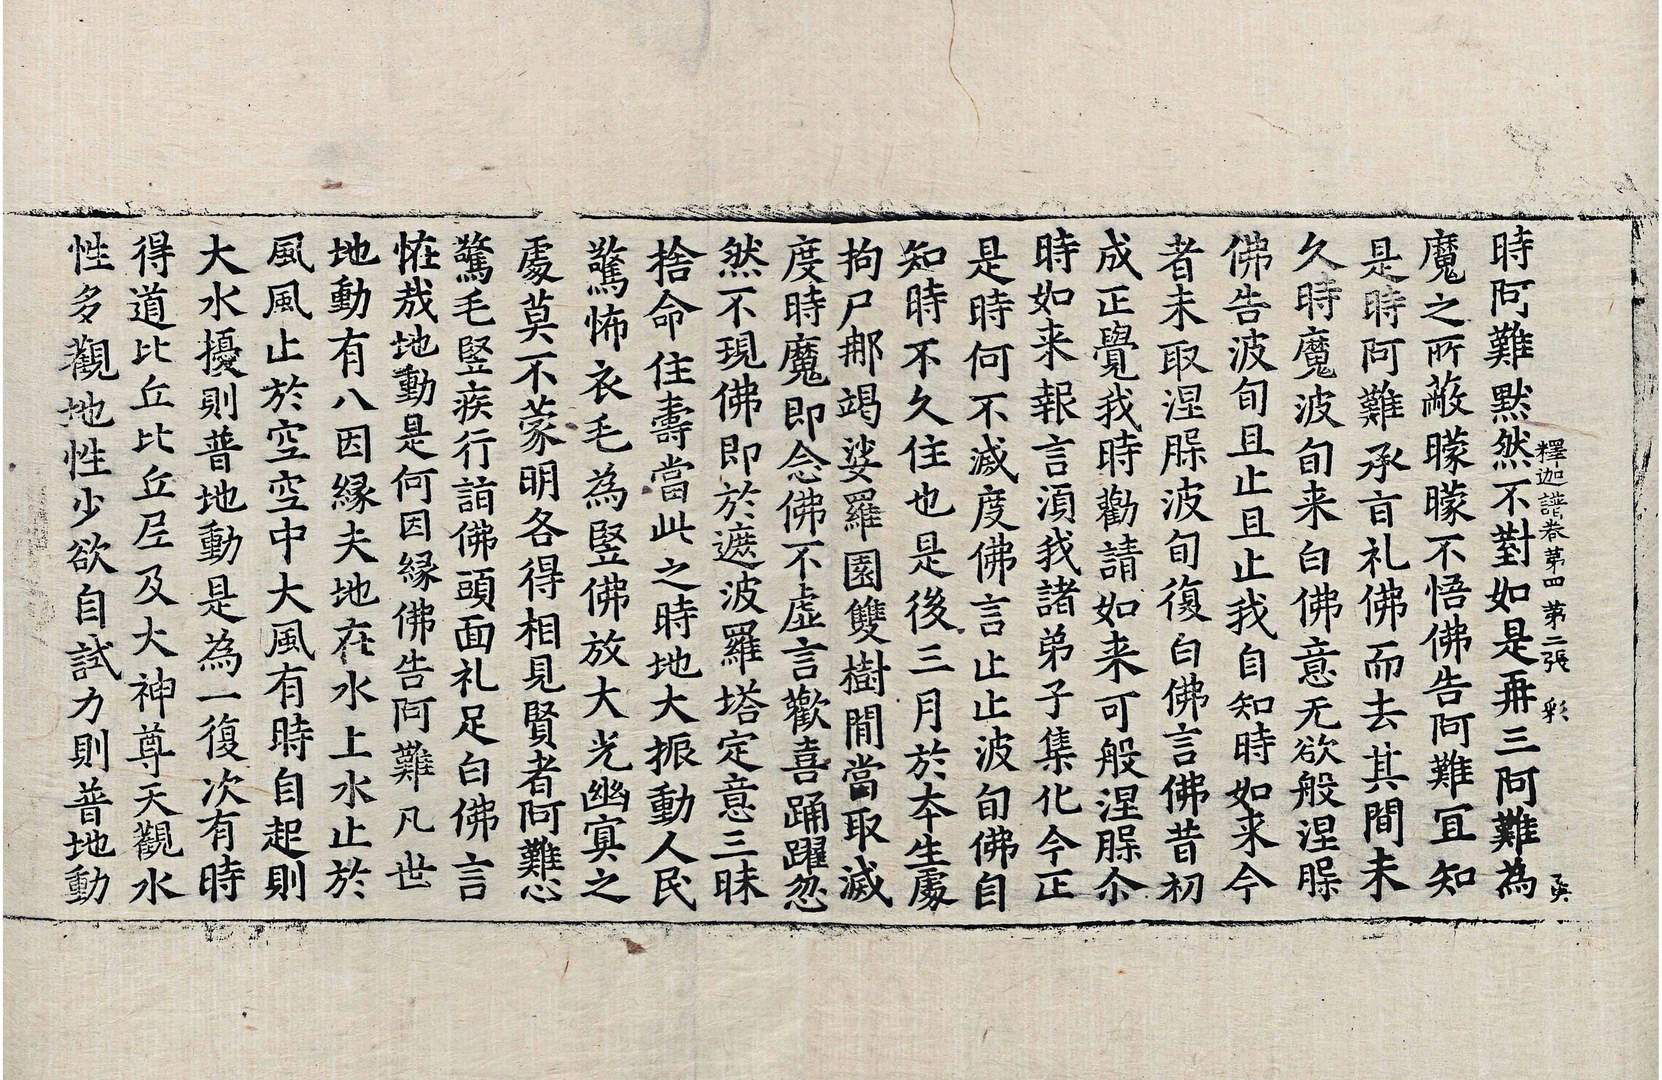 時阿難黙然不對如是再三阿難為
釋迦譜卷第四 第二張 彩
魔之所蔽曚曚不悟佛告阿難宜知
是時阿難承旨礼佛而去其間未
久時魔波旬来白佛意无欲般涅槃
佛告波旬且止且止我自知時如来今
者未取涅槃波旬復白佛言佛昔初
成正覺我時勸請如来可般涅槃尒
時如来報言湏我諸弟子集化今正
是時何不滅度佛言止止波旬佛自
知時不久住也是後三月於本生處
拘尸那竭娑羅園雙樹間當取滅
度時魔即念佛不虛言歡喜踊躍忽
然不現佛即於遮波羅塔定意三昧
捨命住壽當此之時地大振動人民
驚怖衣毛為竪佛放大光幽冥之
處莫不蒙明各得相見賢者阿難心
驚毛竪疾行詣佛頭面礼足白佛言
恠哉地動是何因緣佛告阿難凡世
地動有八因緣夫地在水上水止於
風風止於空空中大風有時自起則
大水擾則普地動是為一復次有時
得道比丘比丘尼及大神尊天觀水
性多觀地性少欲自試力則普地動